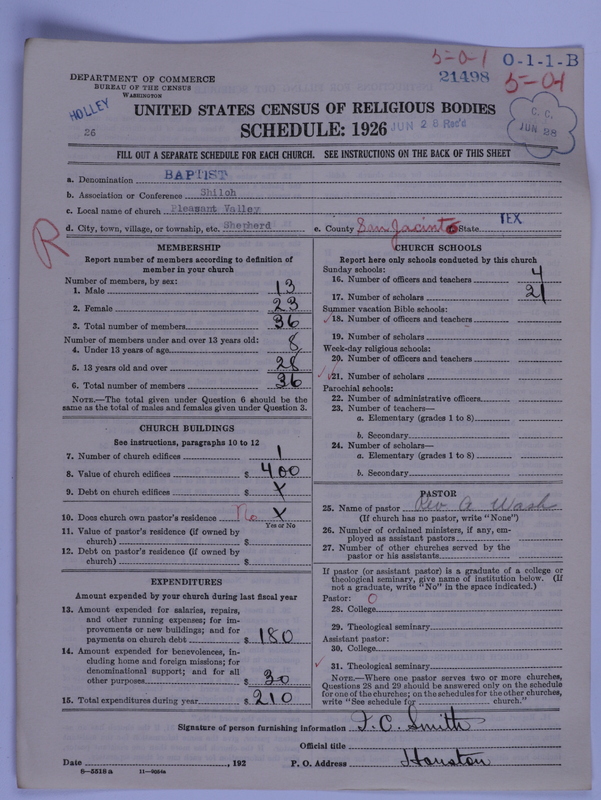 5-0-1 0-1-1-B
21498 5-01
DEPARTMENT OF COMMERCE
BUREAU OF THE CENSUS
WASHINGTON
HOLLEY
26
UNITED STATES CENSUS OF RELIGIOUS BODIES
SCHEDULE: 1926 JUN 28 Rec'd
C. C.
JUN 28
FILL OUT A SEPARATE SCHEDULE FOR EACH CHURCH. SEE INSTRUCTIONS ON THE BACK OF THIS SHEET
a. Denomination BAPTIST
b. Association or Conference Shiloh
c. Local name of church Pleasant Valley
d. City, town, village, or township, etc. Shepherd e. County San Jacinto State TEX
R
MEMBERSHIP
Report number of members according to definition of
member in your church
Number of members, by sex:
1. Male 13
2. Female 23
3. Total number of members 36
Number of members under and over 13 years old:
4. Under 13 years of age 8
5. 13 years old and over 28
6. Total number of members 36
NOTE.—The total given under Question 6 should be the
same as the total of males and females given under Question 3.
CHURCH BUILDINGS
See instructions, paragraphs 10 to 12
7. Number of church edifices 1
8. Value of church edifices $ 400
9. Debt on church edifices $ X
10. Does church own pastor's residence No X
Yes or No
11. Value of pastor's residence (if owned by
church) $
12. Debt on pastor's residence (if owned by
church) $
EXPENDITURES
Amount expended by your church during last fiscal year
13. Amount expended for salaries, repairs,
and other running expenses; for im-
provements or new buildings; and for
payments on church debt $ 180
14. Amount expended for benevolences, in-
cluding home and foreign missions; for
denominational support; and for all
other purposes $ 30
15. Total expenditures during year $ 210
CHURCH SCHOOLS
Report here only schools conducted by this church
Sunday schools:
16. Number of officers and teachers 4
17. Number of scholars 21
Summer vacation Bible schools:
18. Number of officers and teachers
19. Number of scholars
Week-day religious schools:
20. Number of officers and teachers
21. Number of scholars
Parochial schools:
22. Number of administrative officers
23. Number of teachers—
a. Elementary (grades 1 to 8)
b. Secondary
24. Number of scholars—
a. Elementary (grades 1 to 8)
b. Secondary
PASTOR
25. Name of pastor Rev A. Wash
(If church has no pastor, write "None")
26. Number of ordained ministers, if any, em-
ployed as assistant pastors
27. Number of other churches served by the
pastor or his assistants
If pastor (or assistant pastor) is a graduate of a college or
theological seminary, give name of institution below. (If
not a graduate, write "No" in the space indicated.)
Pastor: 0
28. College
29. Theological seminary
Assistant pastor:
30. College
31. Theological seminary
NOTE.—Where one pastor serves two or more churches,
Questions 28 and 29 should be answered only on the schedule
for one of the churches; on the schedules for the other churches,
write "See schedule for church."
Signature of person furnishing information F. C. Smith
Official title
Date , 192 P. O. Address Houston
8-5518 a 11-9084a